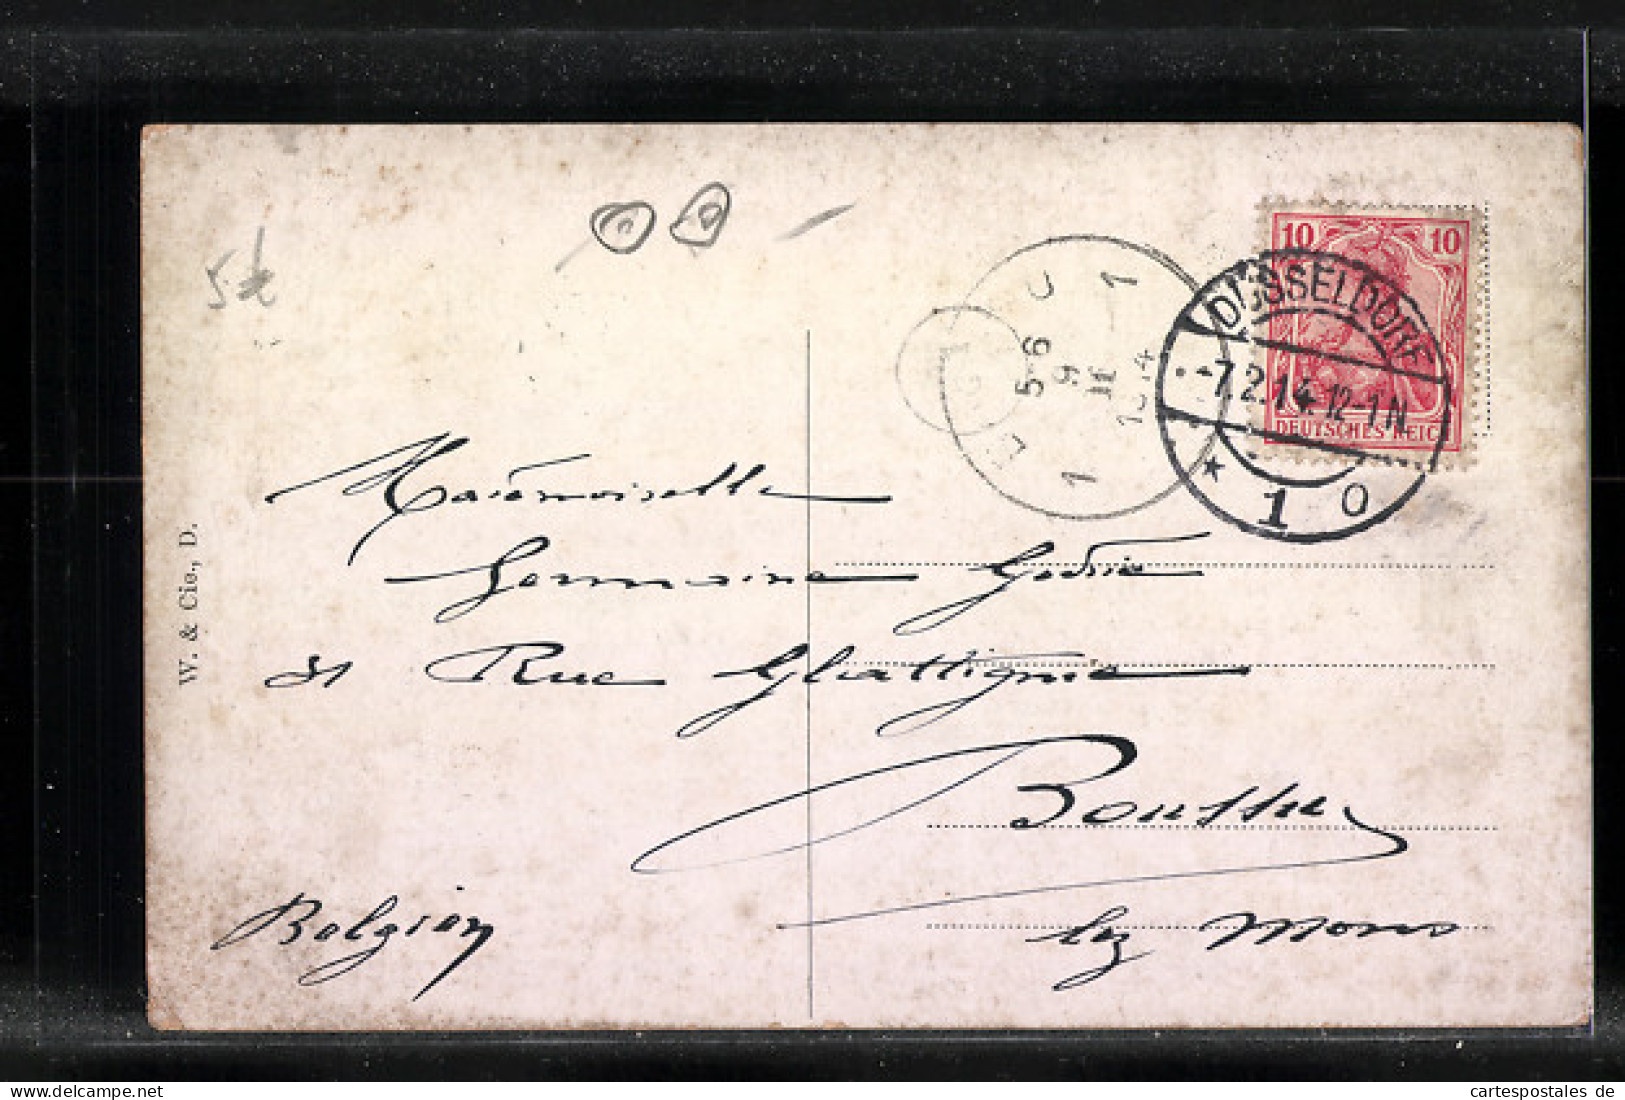 5€
10 10
DÜSSELDORF
-7.2.14.12-1N.
DEUTSCHES REICH
* 1 o
5-6
9
II
1914
1 1
Mademoiselle
Germaine
Rue
Boussu
lez Mons
Belgien
W. & Cie., D.
www.delcampe.net
cartespostales de